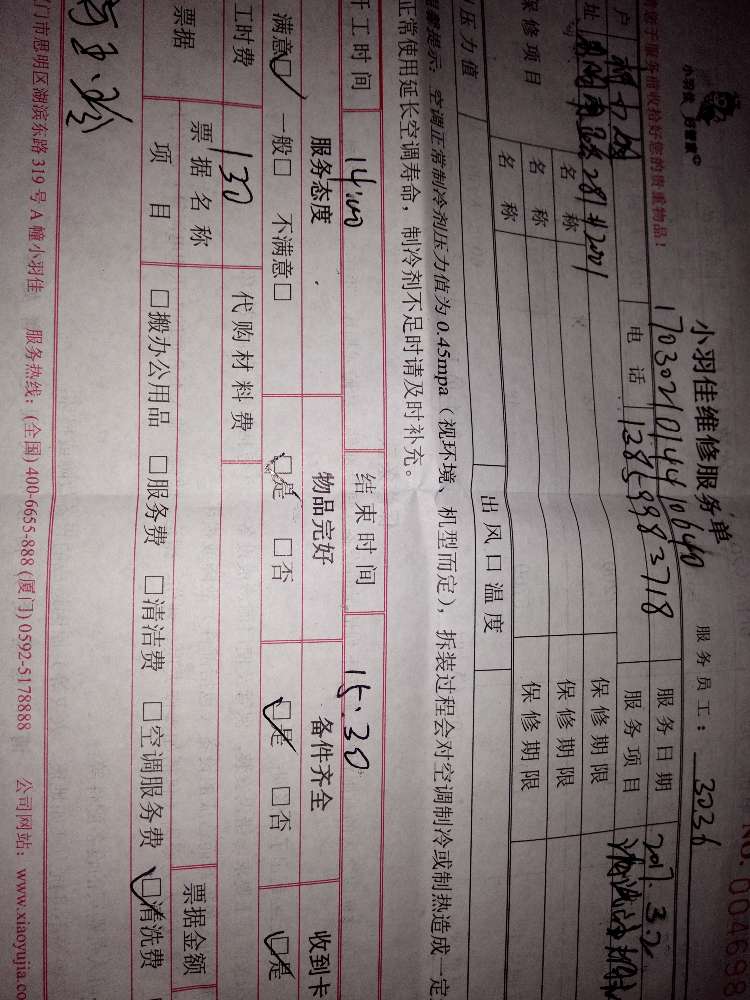 小羽佳 好管家
小羽佳维修服务单
服务员工：3036
17030210144110640
服务日期 2017.3.2
户
电话 12859983718
服务项目
址
281#2001
保修项目
名称
保修期限
名称
保修期限
名称
保修期限
压力值
出风口温度
温馨提示：空调正常制冷剂压力值为0.45mpa（视环境、机型而定），拆装过程会对空调制冷或制热造成一定
正常使用延长空调寿命，制冷剂不足时请及时补充。
开工时间 14:00 结束时间 15:30
服务态度 物品完好 备件齐全 收到卡
满意☑ 一般□ 不满意□ ☑是 □否 ☑是 □否 ☑是
工时费 130 代购材料费
票据 票据名称 票据金额
项目 □搬办公用品 □服务费 □清洁费 □空调服务费 ☑清洗费
门市思明区湖滨东路319号A幢小羽佳 服务热线：(全国)400-6655-888 (厦门)0592-5178888 公司网站：www.xiaoyujia.co